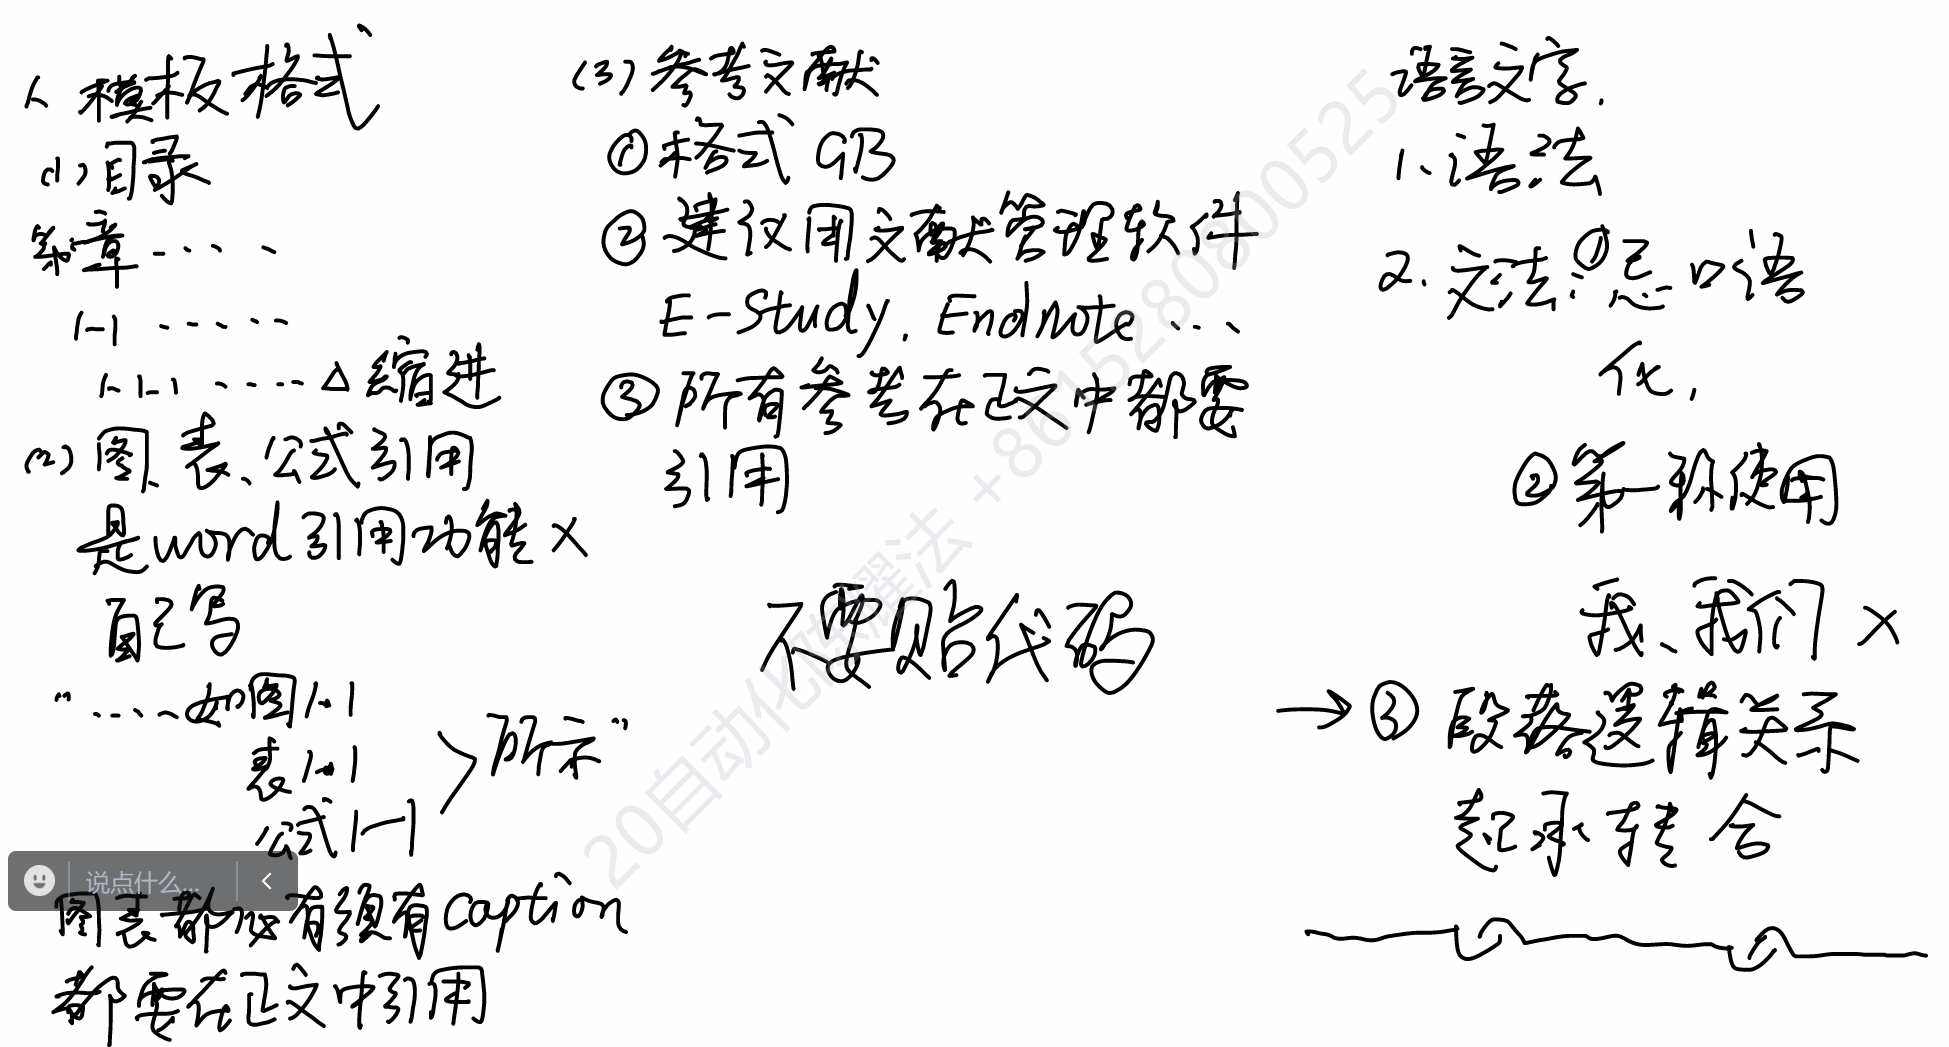 1、模板格式
(1)目录
第一章.....
1-1 ......
1.1.1 ..... △缩进
(2)图、表、公式引用
是word引用功能 ×
自己写
“.....如图1-1
表1-1
公式1-1
所示”
图表都必有须有caption
都要在正文中引用
(3)参考文献
①格式 GB
②建议用文献管理软件
E-Study, Endnote ...
③所有参考在正文中都要
引用
不要贴代码
语言文字.
1、语法
2.文法:①忌口语
化,
②第一称使用
我、我们 ×
→③ 段落逻辑关系
起承转合
说点什么...